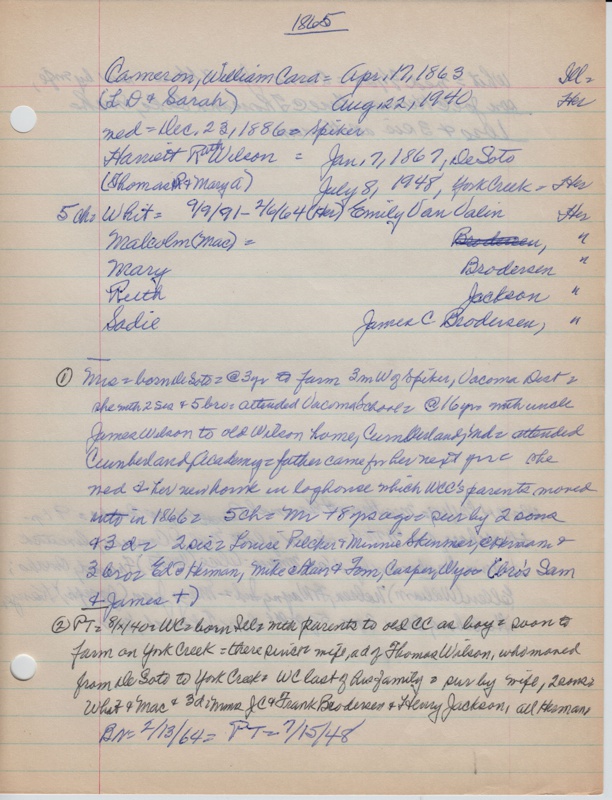 1865
Cameron, William Cara = Apr, 17, 1863 Ill=
(L D & Sarah) Aug, 22, 1940 Her
med = Dec, 23, 1886 = Spiker
Harriett Ruth Wilson = Jan, 7, 1867, DeSoto
(Thomas R & Mary A) July 8, 1948, York Creek = Her
5 ch = Whit = 9/9/91 - 2/6/64 (Her) Emily Van Valin Her
Malcolm (Mac) = Brodersen, "
Mary Brodersen "
Ruth Jackson "
Sadie James C Brodersen, "
① Mrs = born DeSoto = @ 3 yr to farm 3 m W of Spiker, Vacoma Dist =
she with 2 sis & 5 bro = attended Vacoma School = @ 16 yrs with uncle
James Wilson to old Wilson home, Cumberland, Ind = attended
Cumberland Academy = father came for her next yr = she
med & her new home in loghouse which WCC's parents moved
into in 1866 = 5 ch = Mr + 8 yrs ago = sur by 2 sons
& 3 d = 2 sis = Louise Pilcher & Minnie Skinner, Herman &
3 bro = Ed = Herman, Mike = Blair & Tom, Casper, Wyo = (bro's Sam
& James +)
② PT = 8/ /40 = WC = born Ill = with parents to old CC as boy = soon to
farm on York Creek = there since = wife, a d of Thomas Wilson, who moved
from DeSoto to York Creek = WC last of his family = sur by wife, 2 sons =
Whit & Mac & 3 d = Mmes J C & Frank Brodersen & Henry Jackson, all Herman
BN = 2/13/64 = PT = 7/15/48